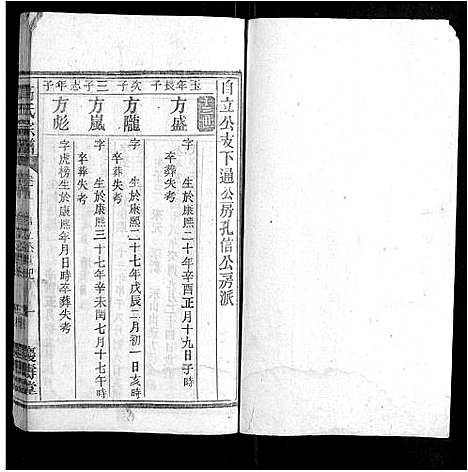 自立公支下通公房孔信公房派
玉年長子
方盛
字 生於康熙二十年辛酉正月十九日子時
卒葬失考
次子
方隴
字 生於康熙二十七年戊辰二月初一日亥時
卒葬失考
三子
方嵐
字 生於康熙三十七年辛未閏七月十七午時
卒葬失考
志年子
方彪
字虎榜生於康熙年月日時卒葬失考
方氏宗譜